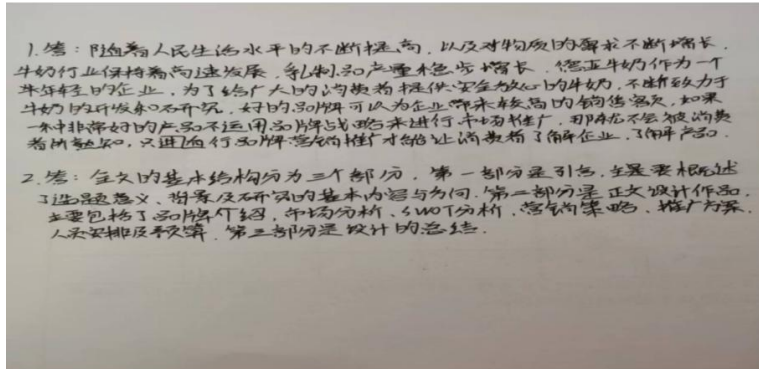 1.答：随着人民生活水平的不断提高，以及对物质的需求不断增长，
牛奶行业保持着高速发展，乳制品产量稳步增长，牛奶作为一个
年轻的企业，为了给广大的消费者提供安全放心的牛奶，不断致力于
牛奶的开发和研究，好的品牌可以为企业带来较高的销售额次，如果
一种非常好的产品不运用品牌战略来进行市场推广，那就不会被消费
者所熟知，只进行品牌营销推广才能让消费者了解企业，了解产品.
2.答：全文的基本结构分为三个部分，第一部分是引言，主要概述
了选题意义、背景及研究的基本内容与方向.第二部分是正文设计作品，
主要包括了品牌介绍，市场分析、SWOT分析，营销策略、推广方案，
人员安排及预算，第三部分是设计的总结.